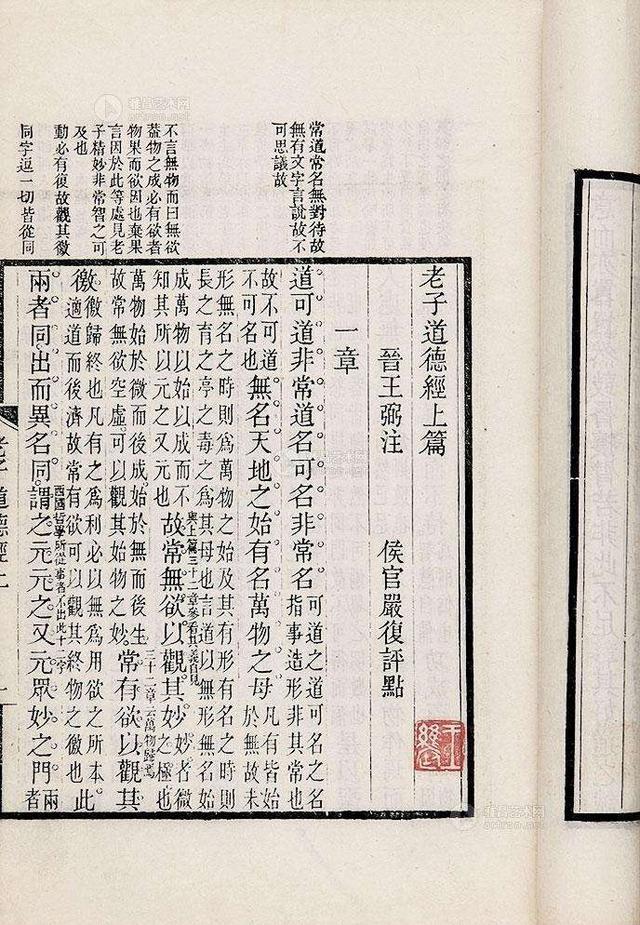 常道常名無對待故
無有文字言說故不
可思議故
不言無物而曰無欲
蓋物之成必有欲者
物果而欲因也棄果
言因於此等處見老
子精妙非常智之可
及也
動必有復故觀其徼
同字逗一切皆從同
老子道德經上篇
晉王弼注 侯官嚴復評點
一章
道可道。非常道。名可名。非常名。可道之道可名之名
指事造形非其常也
故不可道
不可名也無名天地之始。有名萬物之母。凡有皆始
於無故未
形無名之時則爲萬物之始及其有形有名之時則
長之育之亭之毒之爲其母也言道以無形無名始
成萬物以始以成而不
知其所以元之又元也故常無欲以觀其妙。妙者微
之極也
與上篇三十二章參看其義自見
萬物始於微而後成始於無而後生
故常無欲空虛可以觀其始物之妙常有欲以觀其
三十二章云萬物歸焉
徼。徼歸終也凡有之爲利必以無爲用欲之所本
適道而後濟故常有欲可以觀其終物之徼也此
兩者同出而異名。同謂之元。元之又元。眾妙之門。兩
者
西國哲學所從事者不出此十二字
老子道德經上